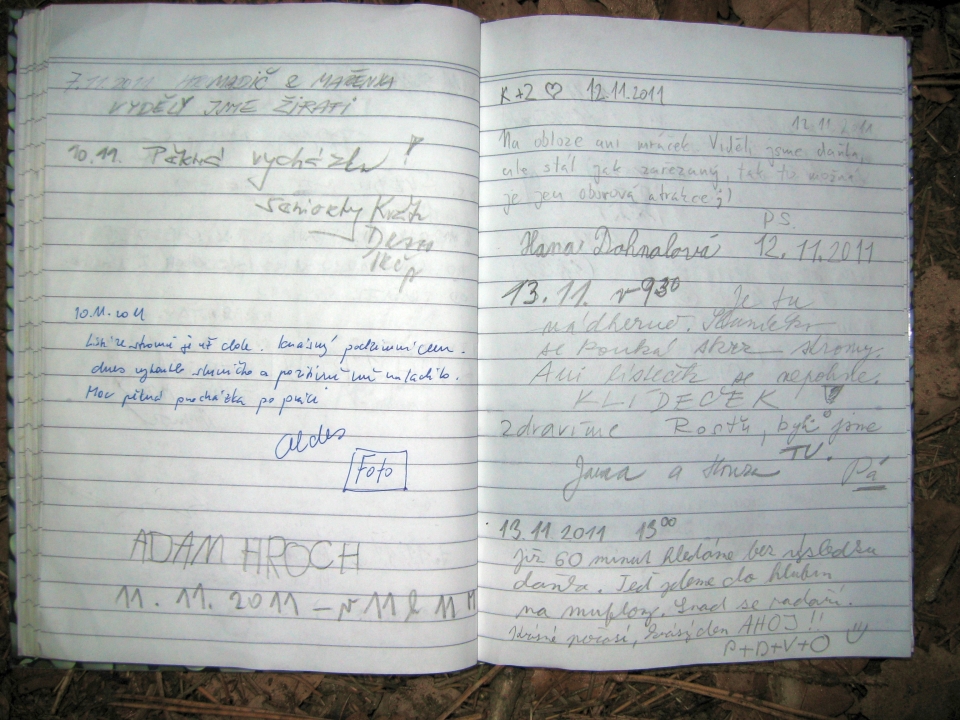 7.11.2011 MADIČ & MAŘENKA
VYDĚLY JSME ŽÍRATI
10.11. Pěkná vycházka!
10.11.2011
Listí ze stromů je už dole. Krásný podzimní den.
dnes vykouklo sluníčko a pozitivně mě naladilo.
Moc pěkná procházka po práci
Foto
ADAM HROCH
11.11.2011 – v 11 h 11 M
K+Z ♡ 12.11.2011
12.11.2011
Na obloze ani mráček. Viděli jsme daňka,
ale stál jak zařezaný, tak to možná
je jen oborová atrakce ;)
P.S.
Hana Dohnalová 12.11.2011
13.11. v 9³⁰ Je tu
nádherně. Sluníčko
se kouká skrz stromy.
Ani lísteček se nepohne.
KLÍDEČEK!
Zdravíme Rosťu, byli jsme
TU.
Jana a Honza Pá
13.11.2011 13⁰⁰
Již 60 minut hledáme bez výsledku
daňka. Teď jdeme do hlubin
na muflony. Snad se zadaří.
Krásné počasí, krásný den AHOJ!!
P+D+V+O